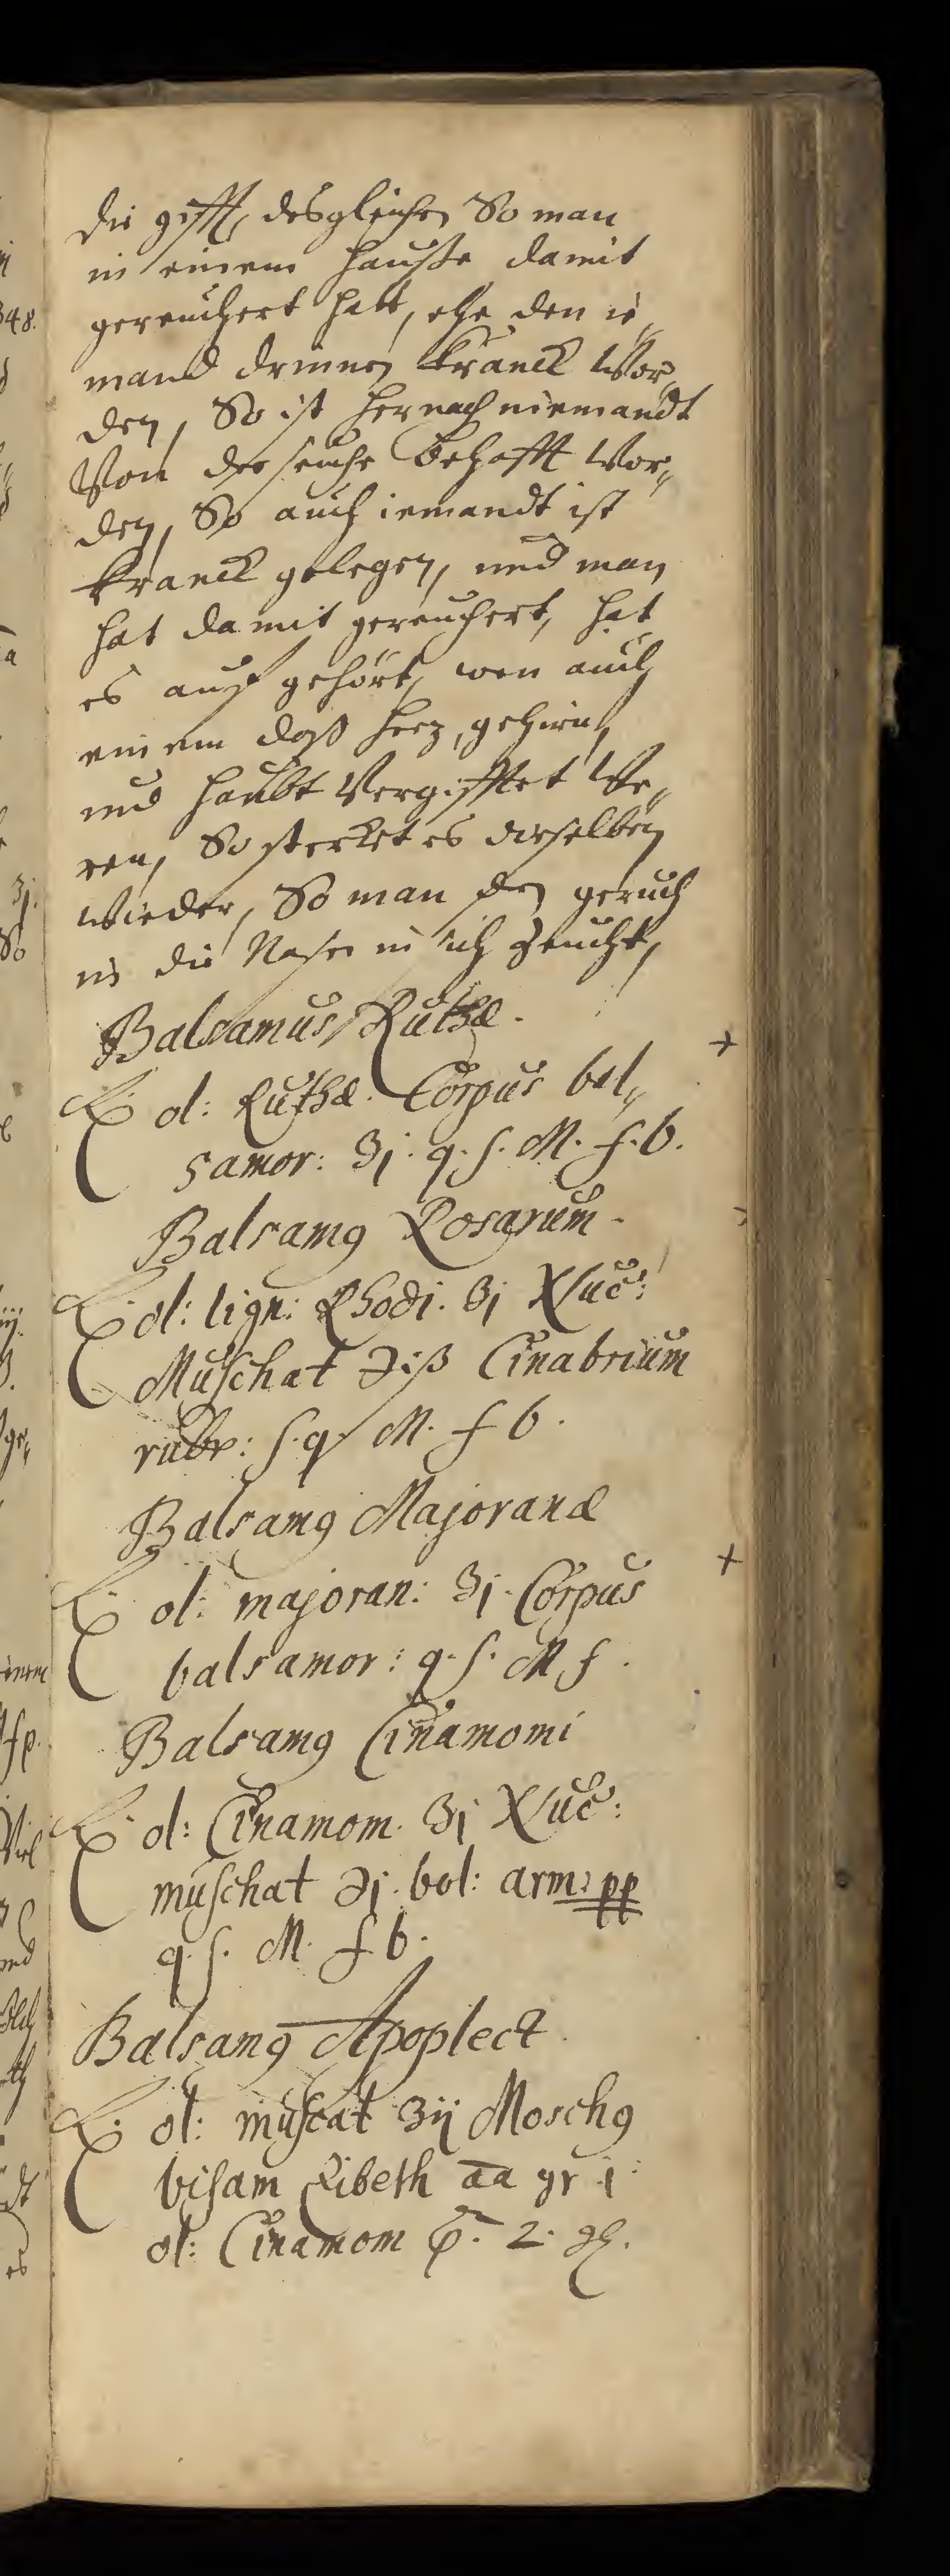 die gifft, desgleichen So man
in einem hausße damit
gereuchert hatt, ehe den ie„
mand drinnen kranck Wor„
den, So ist hernach niemandt
Von der seuche behafft Wor„
den, So auch iemandt ist
kranck gelegen, und man
hat damit gereuchert, hat
es auff gehört, wen auch
einem daß herz, gehirn,
und haubt Vergifftet We„
ren, So sterket es dieselben
wieder, So man den geruch
in die Nasen in sich zeucht,
Balsamus Ruthæ.
℞ ol: Ruthæ. Corpus bal„
samor: ʒj. q. s. M. f. b.
Balsamꝰ Rosarum.
℞ ol: lign: Rhodi. ʒj Nuc:
Muschat ℈iß Cinabrium
rubr: s. q. M. f b.
Balsamꝰ Majoranæ
℞ ol: majoran: ʒj. Corpus
balsamor: q. s. M f.
Balsamꝰ Cinamomi
℞ ol: Cinamom. ʒj Nuc:
muschat ℈j. bol: arm: pp
q. s. M. f b.
Balsamꝰ Apoplect.
℞ ol: muscat ʒij Moschꝰ
bisam Zibeth aa gr j
ol: Cinamom 2.